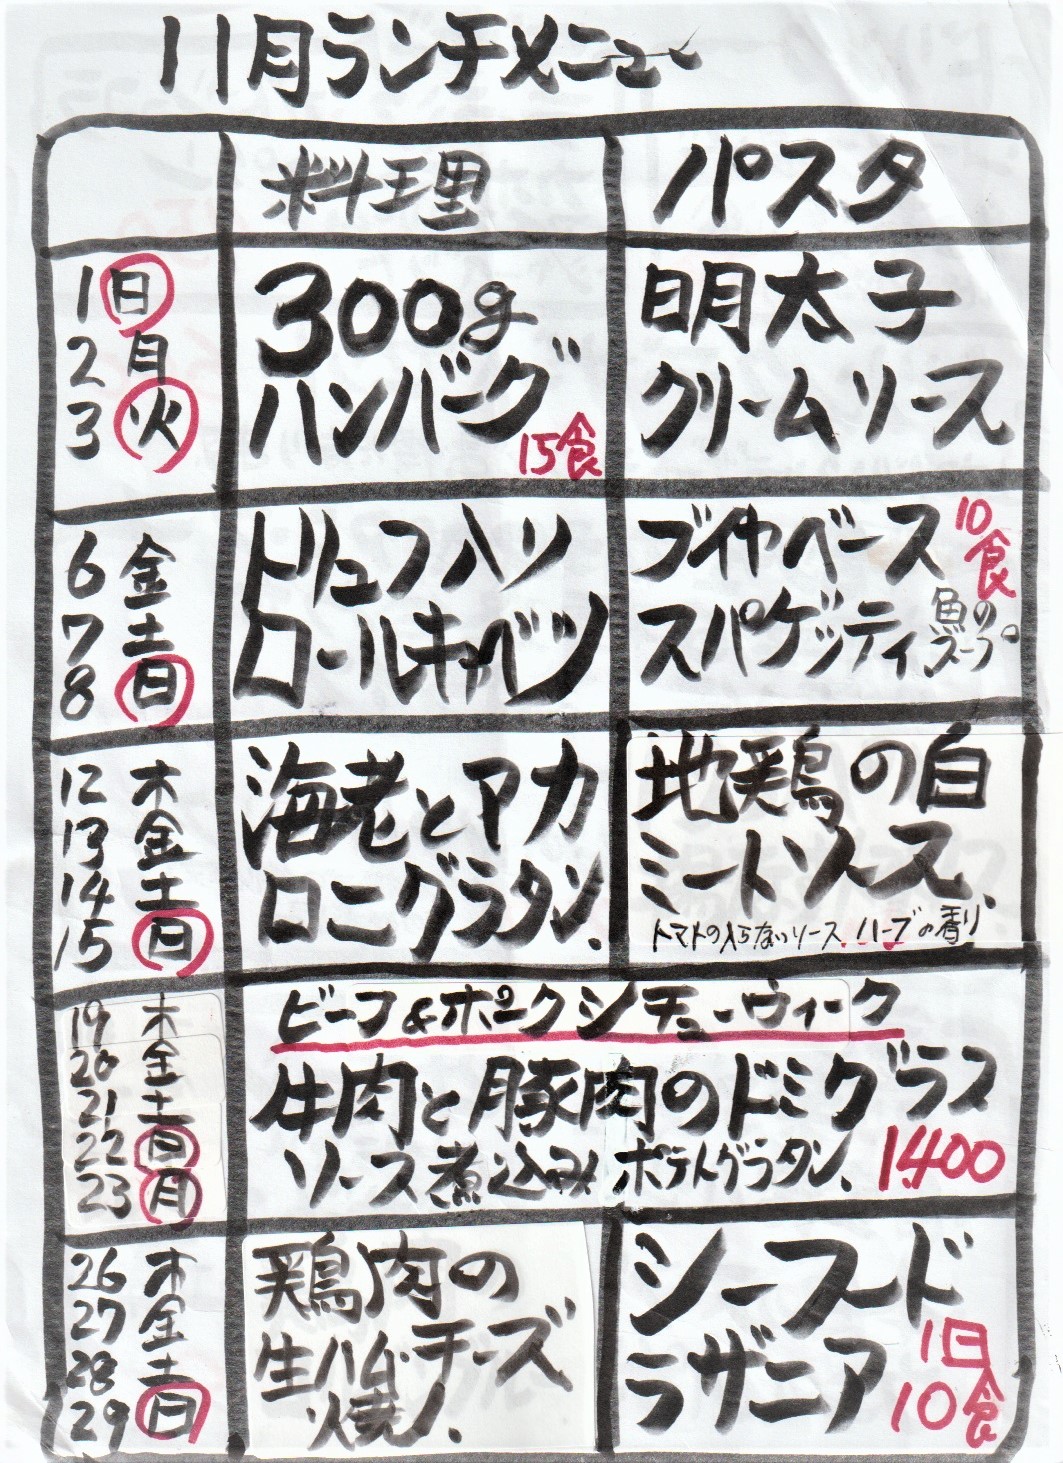 11月ランチメニュー
料理 パスタ
1日
2月
3火
300g
ハンバーグ
15食
明太子
クリームソース
6金
7土
8日
トリュフ入り
ロールキャベツ
ブイヤベース
スパゲッティ
10食
魚の
スープ
12木
13金
14土
15日
海老とマカ
ロニグラタン、
地鶏の白
ミートソース、
トマトの入らないソース ハーブの香り
19木
20金
21土
22日
23月
ビーフ&ポークシチューウィーク
牛肉と豚肉のドミグラス
ソース煮込み ポテトグラタン、 1,400
26木
27金
28土
29日
鶏肉の
生ハム、チーズ
焼、
シーフード
ラザニア
1日
10食